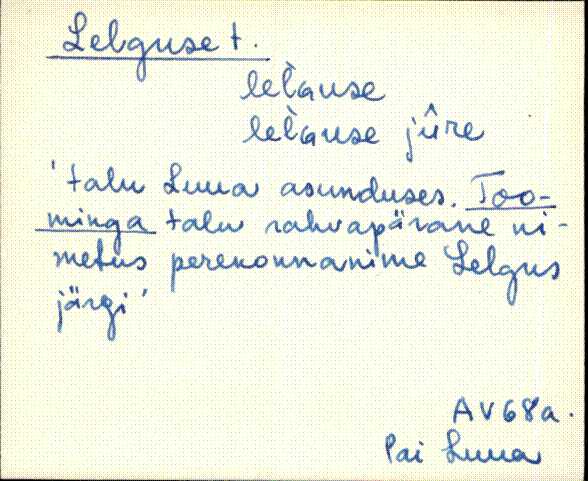 Lelguse t.
lel̀Guse
lel̀Guse jûre
'talu Luua asunduses. Too-
minga talu rahvapärane ni-
metus perekonnanime Lelgus
järgi'
AV68a.
Pai Luua